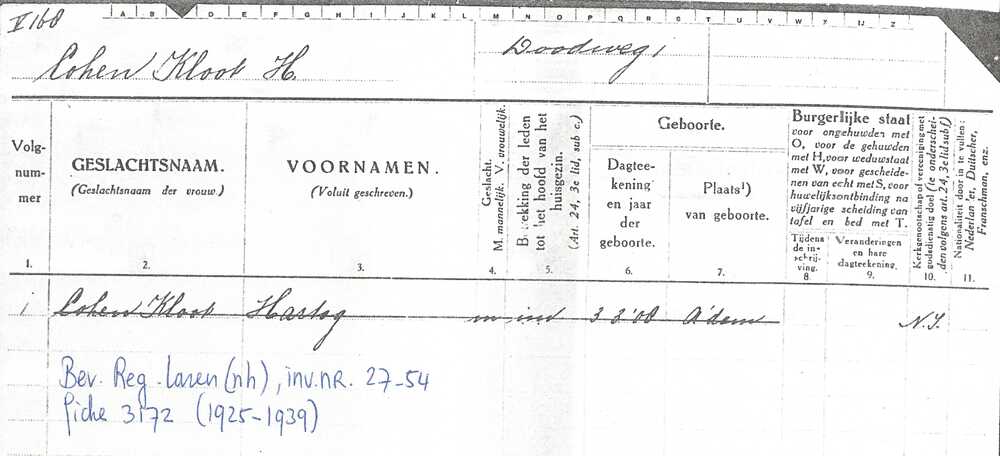 V 168
A B C D E F G H I J K L M N O P Q R S T U V W F Y IJ Z
Cohen Kloot H. Doodweg 1
Volg-
num-
mer
1.
GESLACHTSNAAM.
(Geslachtsnaam der vrouw)
2.
VOORNAMEN.
(Voluit geschreven.)
3.
Geslacht.
M. mannelijk. V. vrouwelijk.
4.
B. trekking der leden
tot het hoofd van het
huisgezin.
(Art. 24, 3e lid, sub c.)
5.
Geboorte.
Dagtee-
kening
en jaar
der
geboorte.
6.
Plaats¹)
van geboorte.
7.
Burgerlijke staat
voor ongehuwden met
O, voor de gehuwden
met H, voor weduwstaat
met W, voor gescheide-
nen van echt met S, voor
huwelijksontbinding na
vijfjarige scheiding van
tafel en bed met T.
Tijdens
de in-
schrij-
ving.
8
Veranderingen
en hare
dagteekening.
9.
Kerkgenootschap of vereeniging met
godsdienstig doel (te onderschei-
den volgens art. 24, 3e lid sub f.)
10.
Nationaliteit door in te vullen:
Nederlan'er, Duitscher,
Franschman, enz.
11.
1 Cohen Kloot Hartog m ind 3 3 '08 A'dam N.I.
Bev. Reg. Laren (nh), inv.nr. 27-54
fiche 3172 (1925-1939)